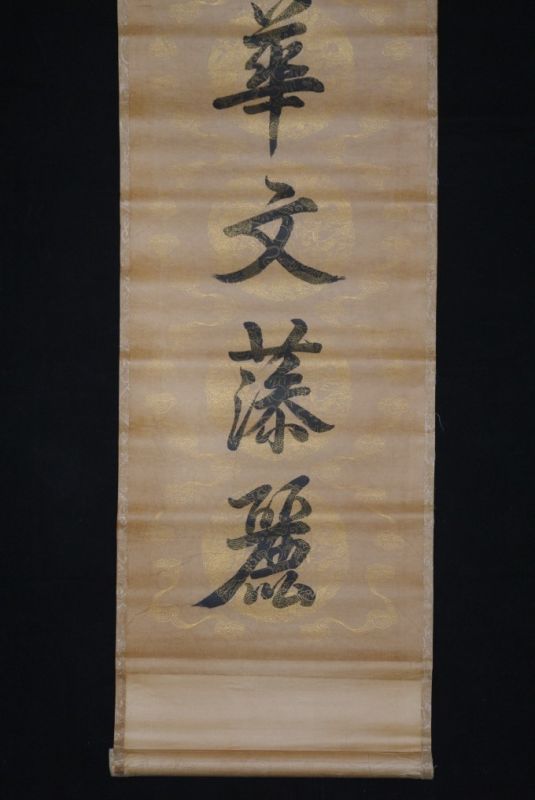 華
文
藻
麗